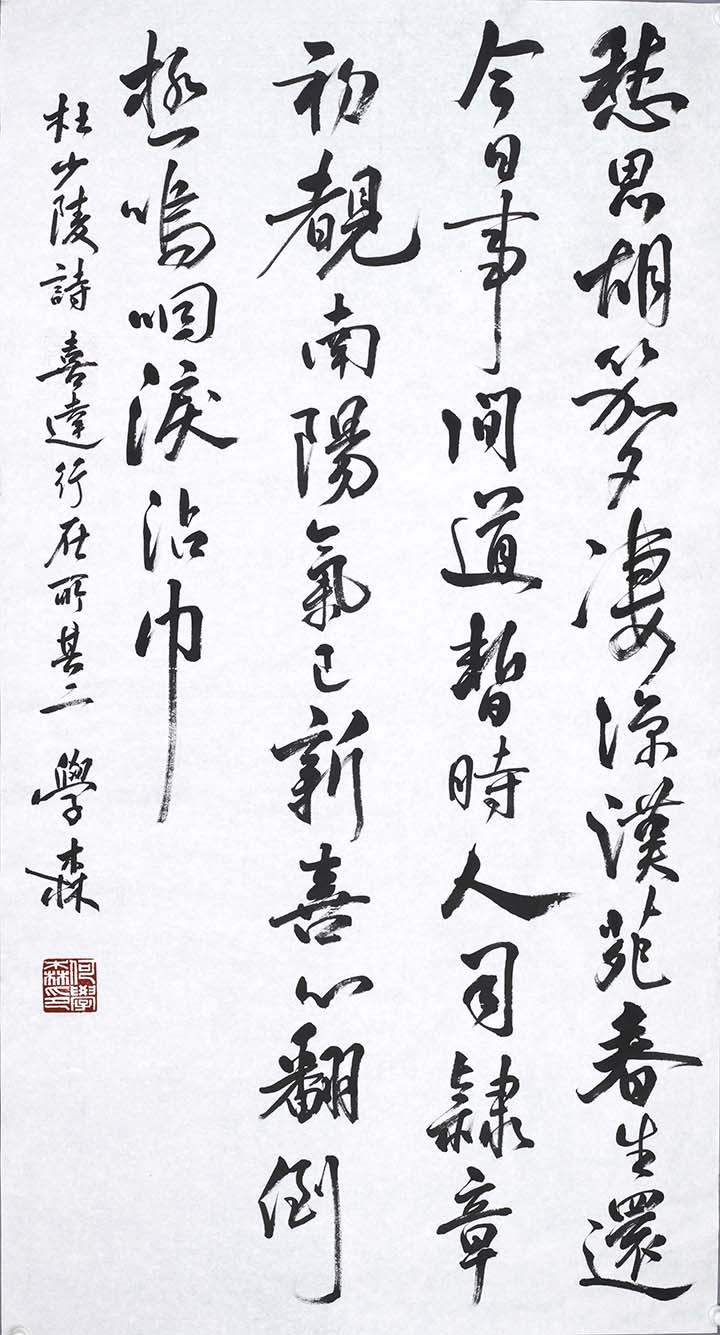 愁思胡笳夕凄涼漢苑春生還
今日事間道暫時人司隸章
初覩南陽氣已新喜心翻倒
極嗚咽淚沾巾
杜少陵詩 喜達行在所其二 學森
何學森印